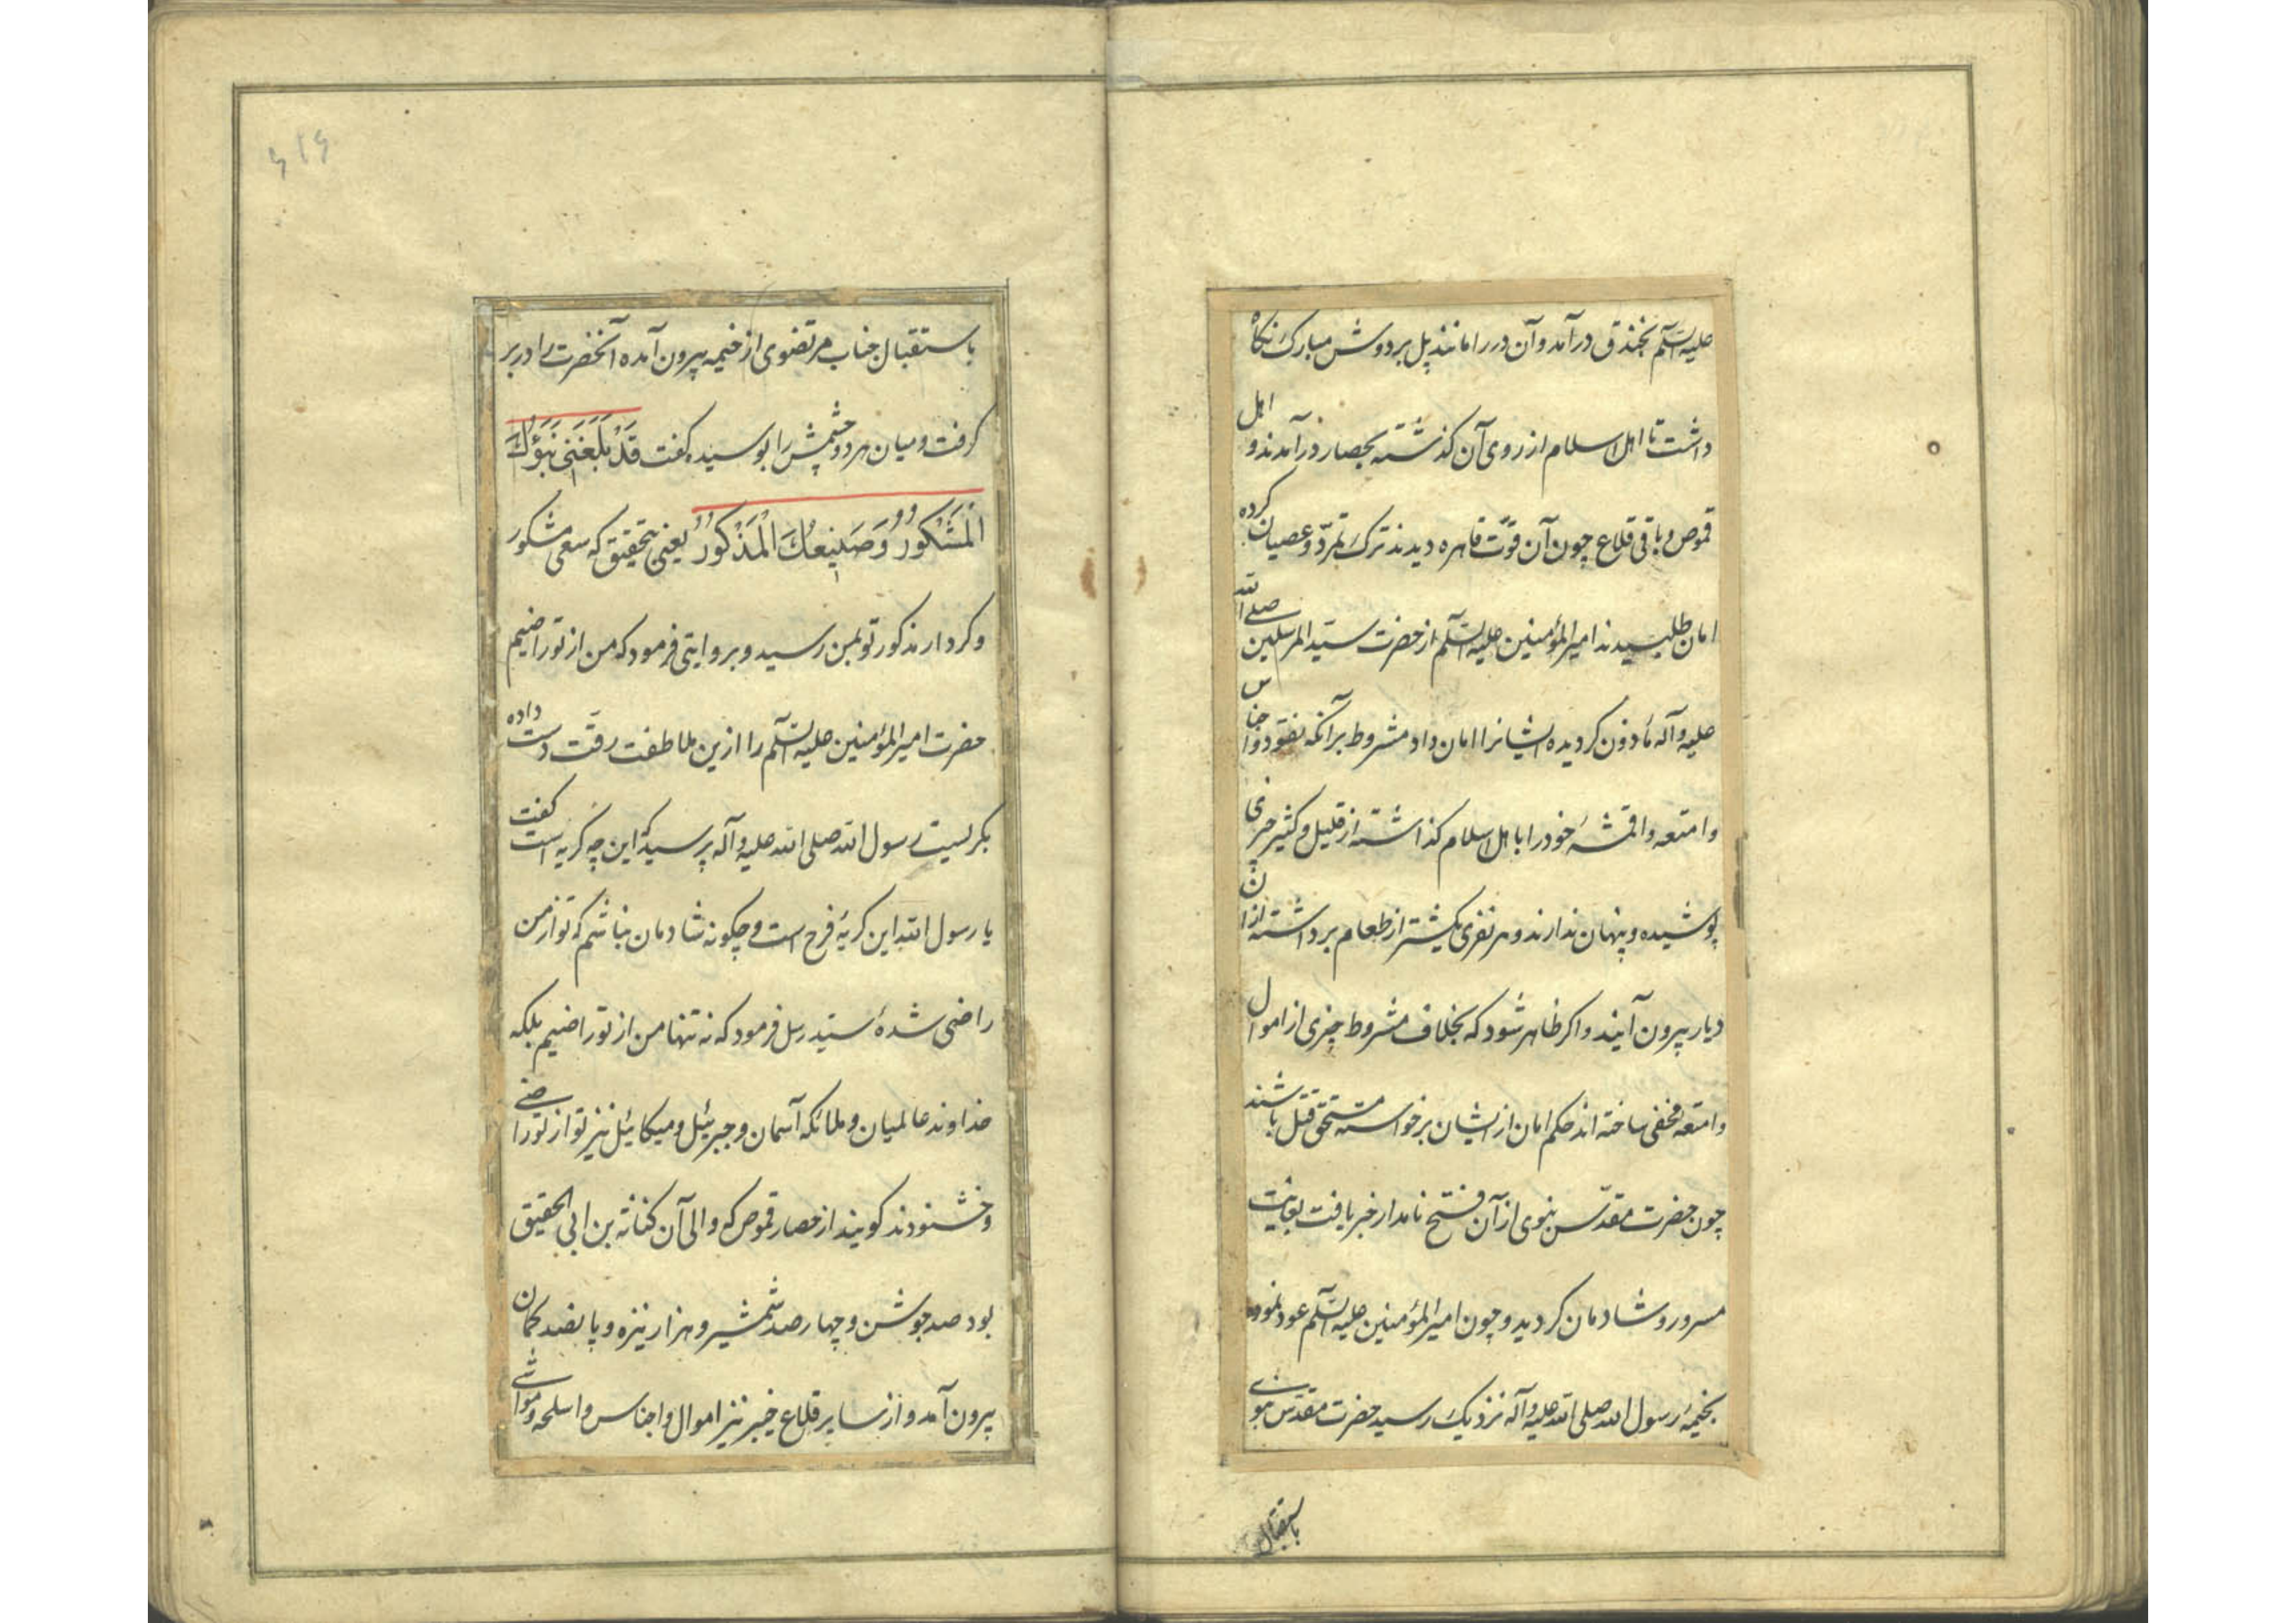 علیه السلم بخندق درآمد و آن در را مانند پل بر دوش مبارک نکاه
داشت تا اهل اسلام از روی آن کذشته بحصار درآمدند و اهل
قموص و باقی قلاع چون آن قوّت قاهره دیدند ترک تمرّد و عصیان کرده
امان طلبیدند امیرالمؤمنین علیه السلم از حضرت سیّد المرسلین صلی الله
علیه و آله مأذون کردیده ایشانرا امان داد مشروط بر آنکه نقود و اجناس
و امتعه و اقمشهٔ خود را با اهل اسلام کذاشته از قلیل و کثیر چیزی
پوشیده و پنهان ندارند و هر نفری یکشتر از طعام برداشته از ان
دیار بیرون آیند و اکر ظاهر شود که بخلاف مشروط چیزی از اموال
و امتعه مخفی ساخته اند حکم امان از ایشان برخواسته مستحق قتل باشند
چون حضرت مقدّس نبوی از آن فتح نامدار خبر یافت بغایت
مسرور و شادمان کردید و چون امیرالمؤمنین علیه السلم عود نموده
بخیمهٔ رسول الله صلی الله علیه و آله نزدیک رسید حضرت مقدس نبوی
باستقبال
۶۱۶
باستقبال جناب مرتضوی از خیمه بیرون آمده آنحضرت را در بر
کرفت و میان هر دو چشمش را بوسیده کفت قَدْ بَلَغَنی نَبَؤُکَ
الْمَشْکُورُ وَ صَنِیعُکَ الْمَذْکُورُ یعنی بتحقیق که سعی مشکور
و کردار مذکور تو بمن رسید و بروایتی فرمود که من از تو راضیم
حضرت امیرالمؤمنین علیه السلم را ازین ملاطفت رقّت دست داده
بکریست رسول الله صلی الله علیه و آله پرسید که این چه کریه است کفت
یا رسول الله این کریهٔ فرح است و چکونه شادمان نباشم که تو از من
راضی شدهٔ سیّد رسل فرمود که نه تنها من از تو راضیم بلکه
خداوند عالمیان و ملائکه آسمان و جبرئیل و میکائیل نیز تو از تو راضی
و خشنودند کویند از حصار قموص که والی آن کنانة بن ابی الحقیق
بود صد جوشن و چهار صد شمشیر و هزار نیزه و پانصد کمان
بیرون آمد و از سایر قلاع خیبر نیز اموال و اجناس و اسلحه و مواشی